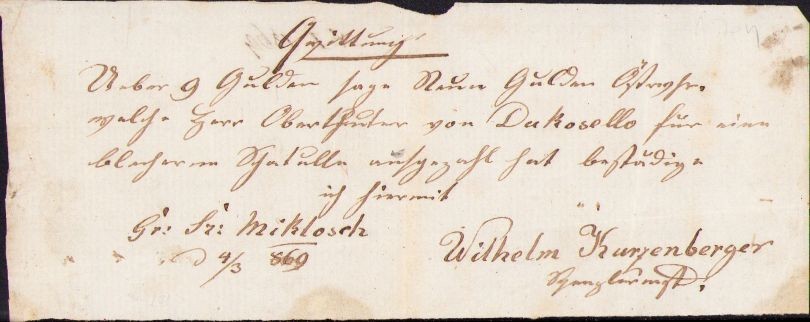 Quittung
Ueber 9 Gulden sage Neun Gulden Östrwhr.
welche Herr Oberthuter von Dukosello für eine
blecherne Schatulle ausgezahlt hat bestädige
ich hiermit
Gr: Sr: Miklosch
d 4/3 869
Wilhelm Kurzenberger
Spenglermst.